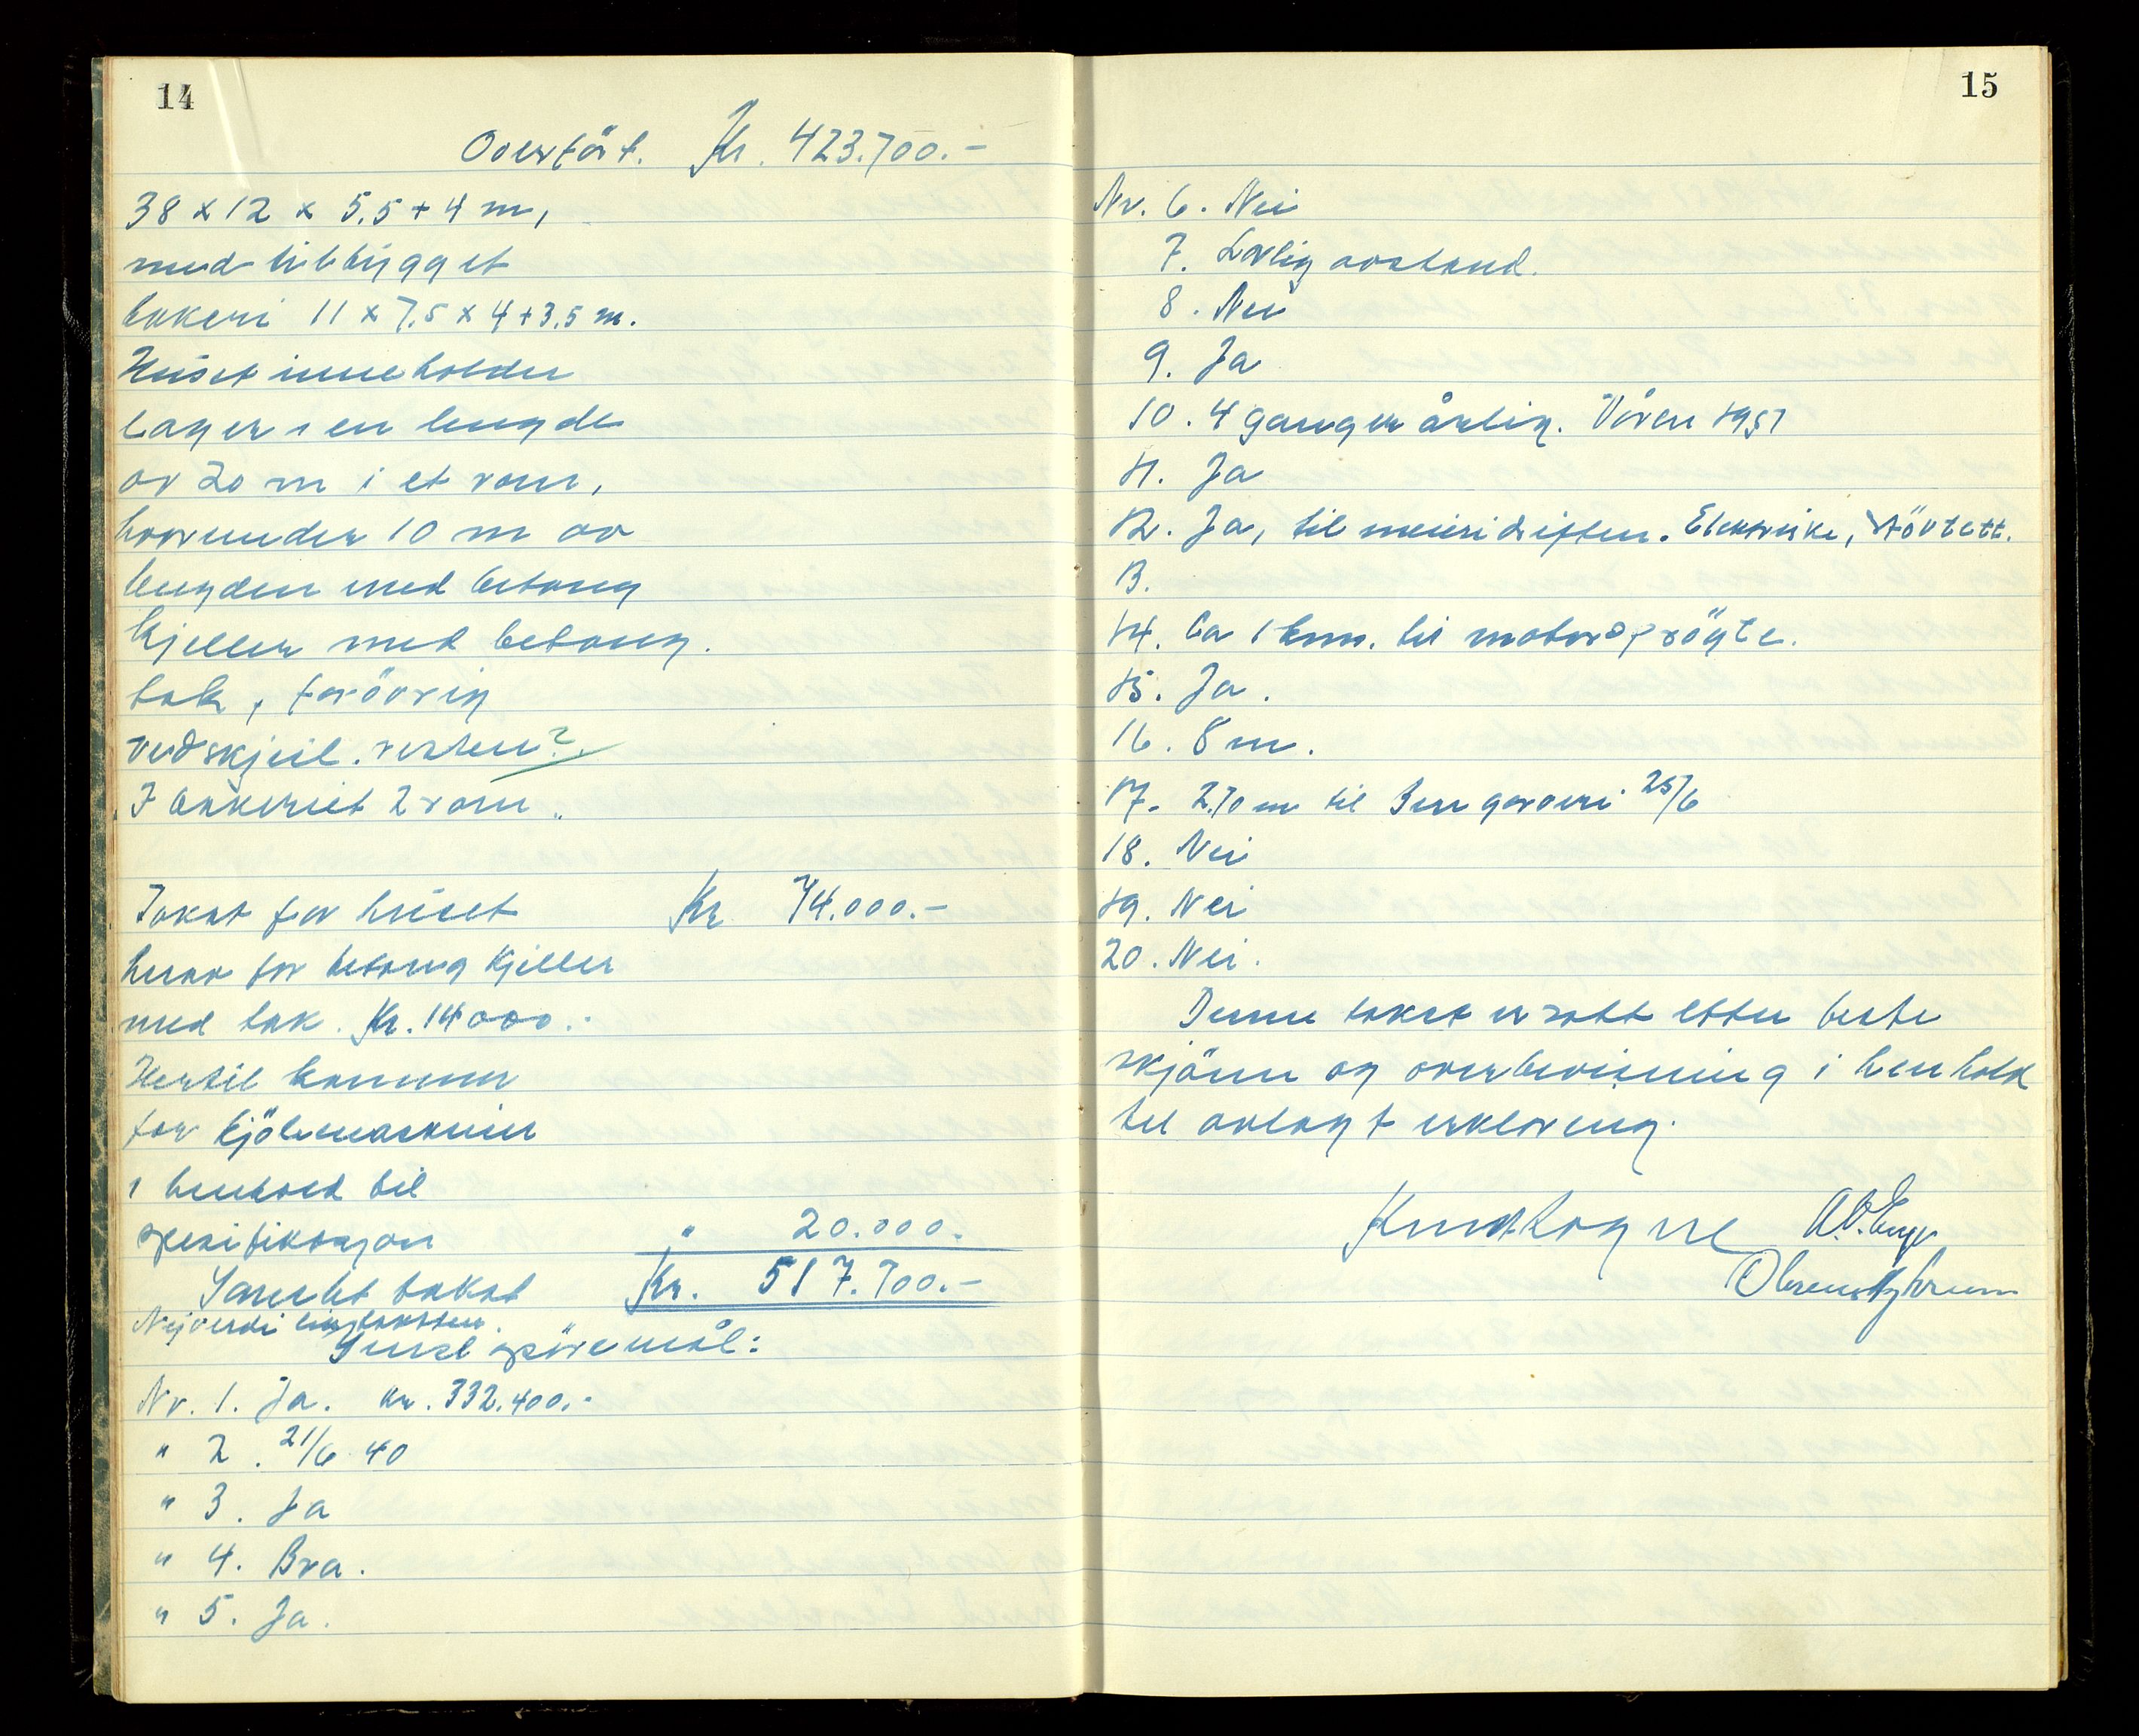 14
Overført. Kr. 423.700.-
38 x 12 x 5.5 + 4 m,
med tilbygget
bakeri 11 x 7.5 x 4 + 3.5 m.
Huset inneholder
lager i en lengde
av 20 m i et rom,
hvorunder 10 m av
lengden med betong
kjeller med betong.
tak, forövrig
vedskjeil. resten?
I bakeriet 2 rom.
Takst for huset Kr 74.000.-
herav for betong kjeller
med tak. Kr. 14000.-
Hertil kommer
for kjölemaskiner
i henhold til
spesifikasjon " 20.000.
Samlet takst Kr. 517.700.-
Nyverdi lik taksten.
spörsmål:
Nr. 1. Ja. kr. 332.400.-
" 2. 21/6 40
" 3. Ja
" 4. Bra.
" 5. Ja.
15
Nr. 6. Nei
7. Lovlig avstand.
8. Nei
9. Ja
10. 4 ganger årlig. Våren 1951
11. Ja
12. Ja, til meieridriften. Elektriske, stövtett.
13.
14. Ca 1 km. til motorspröyte.
15. Ja.
16. 8 m.
17. 2.70 m til garveri 25/6
18. Nei
19. Nei
20. Nei.
Denne takst er satt etter beste
skjönn og overbevisning i henhold
til avlagt erklæring.